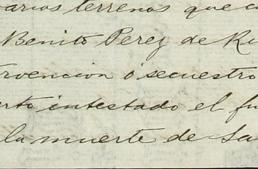 arios terrenos que c
Benito Perez de Ri
rvencion ó secuestro
erto intestado el fu
la muerte de Sa